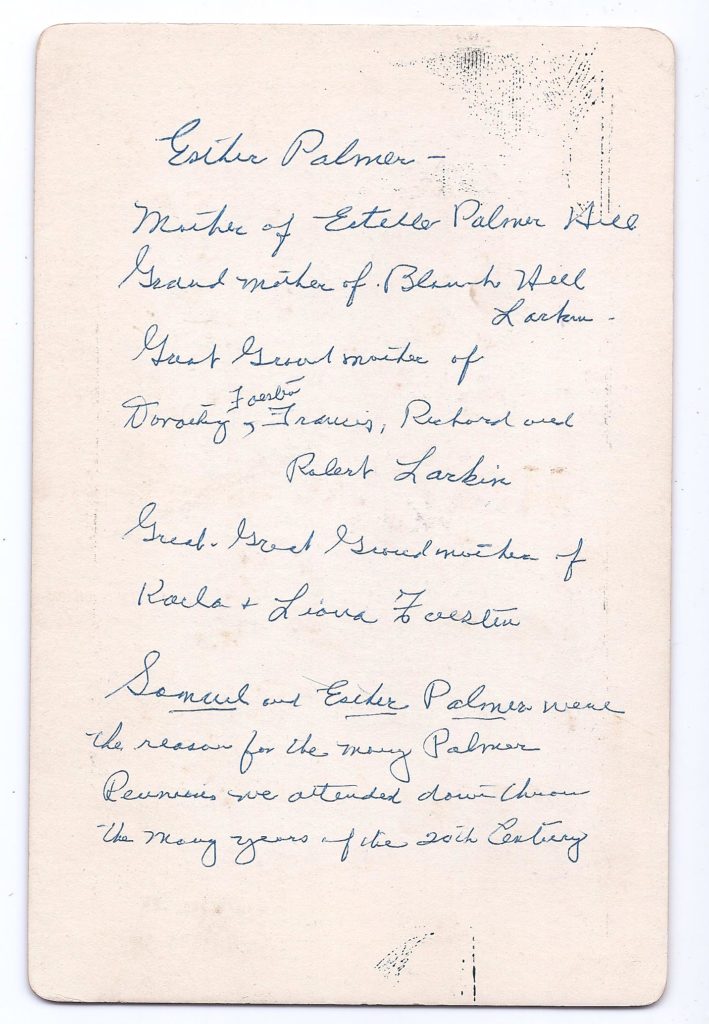 Esther Palmer –
Mother of Estelle Palmer Hill
Grand mother of Blanch Hill
Larkin –
Great Grand mother of
Foester
Dorothy, Francis, Richard and
Robert Larkin
Great-Great Grandmother of
Karla + Liona Foester
Samuel and Esther Palmer were
the reason for the many Palmer
Reunions we attended down throu
the many years of the 20th Century